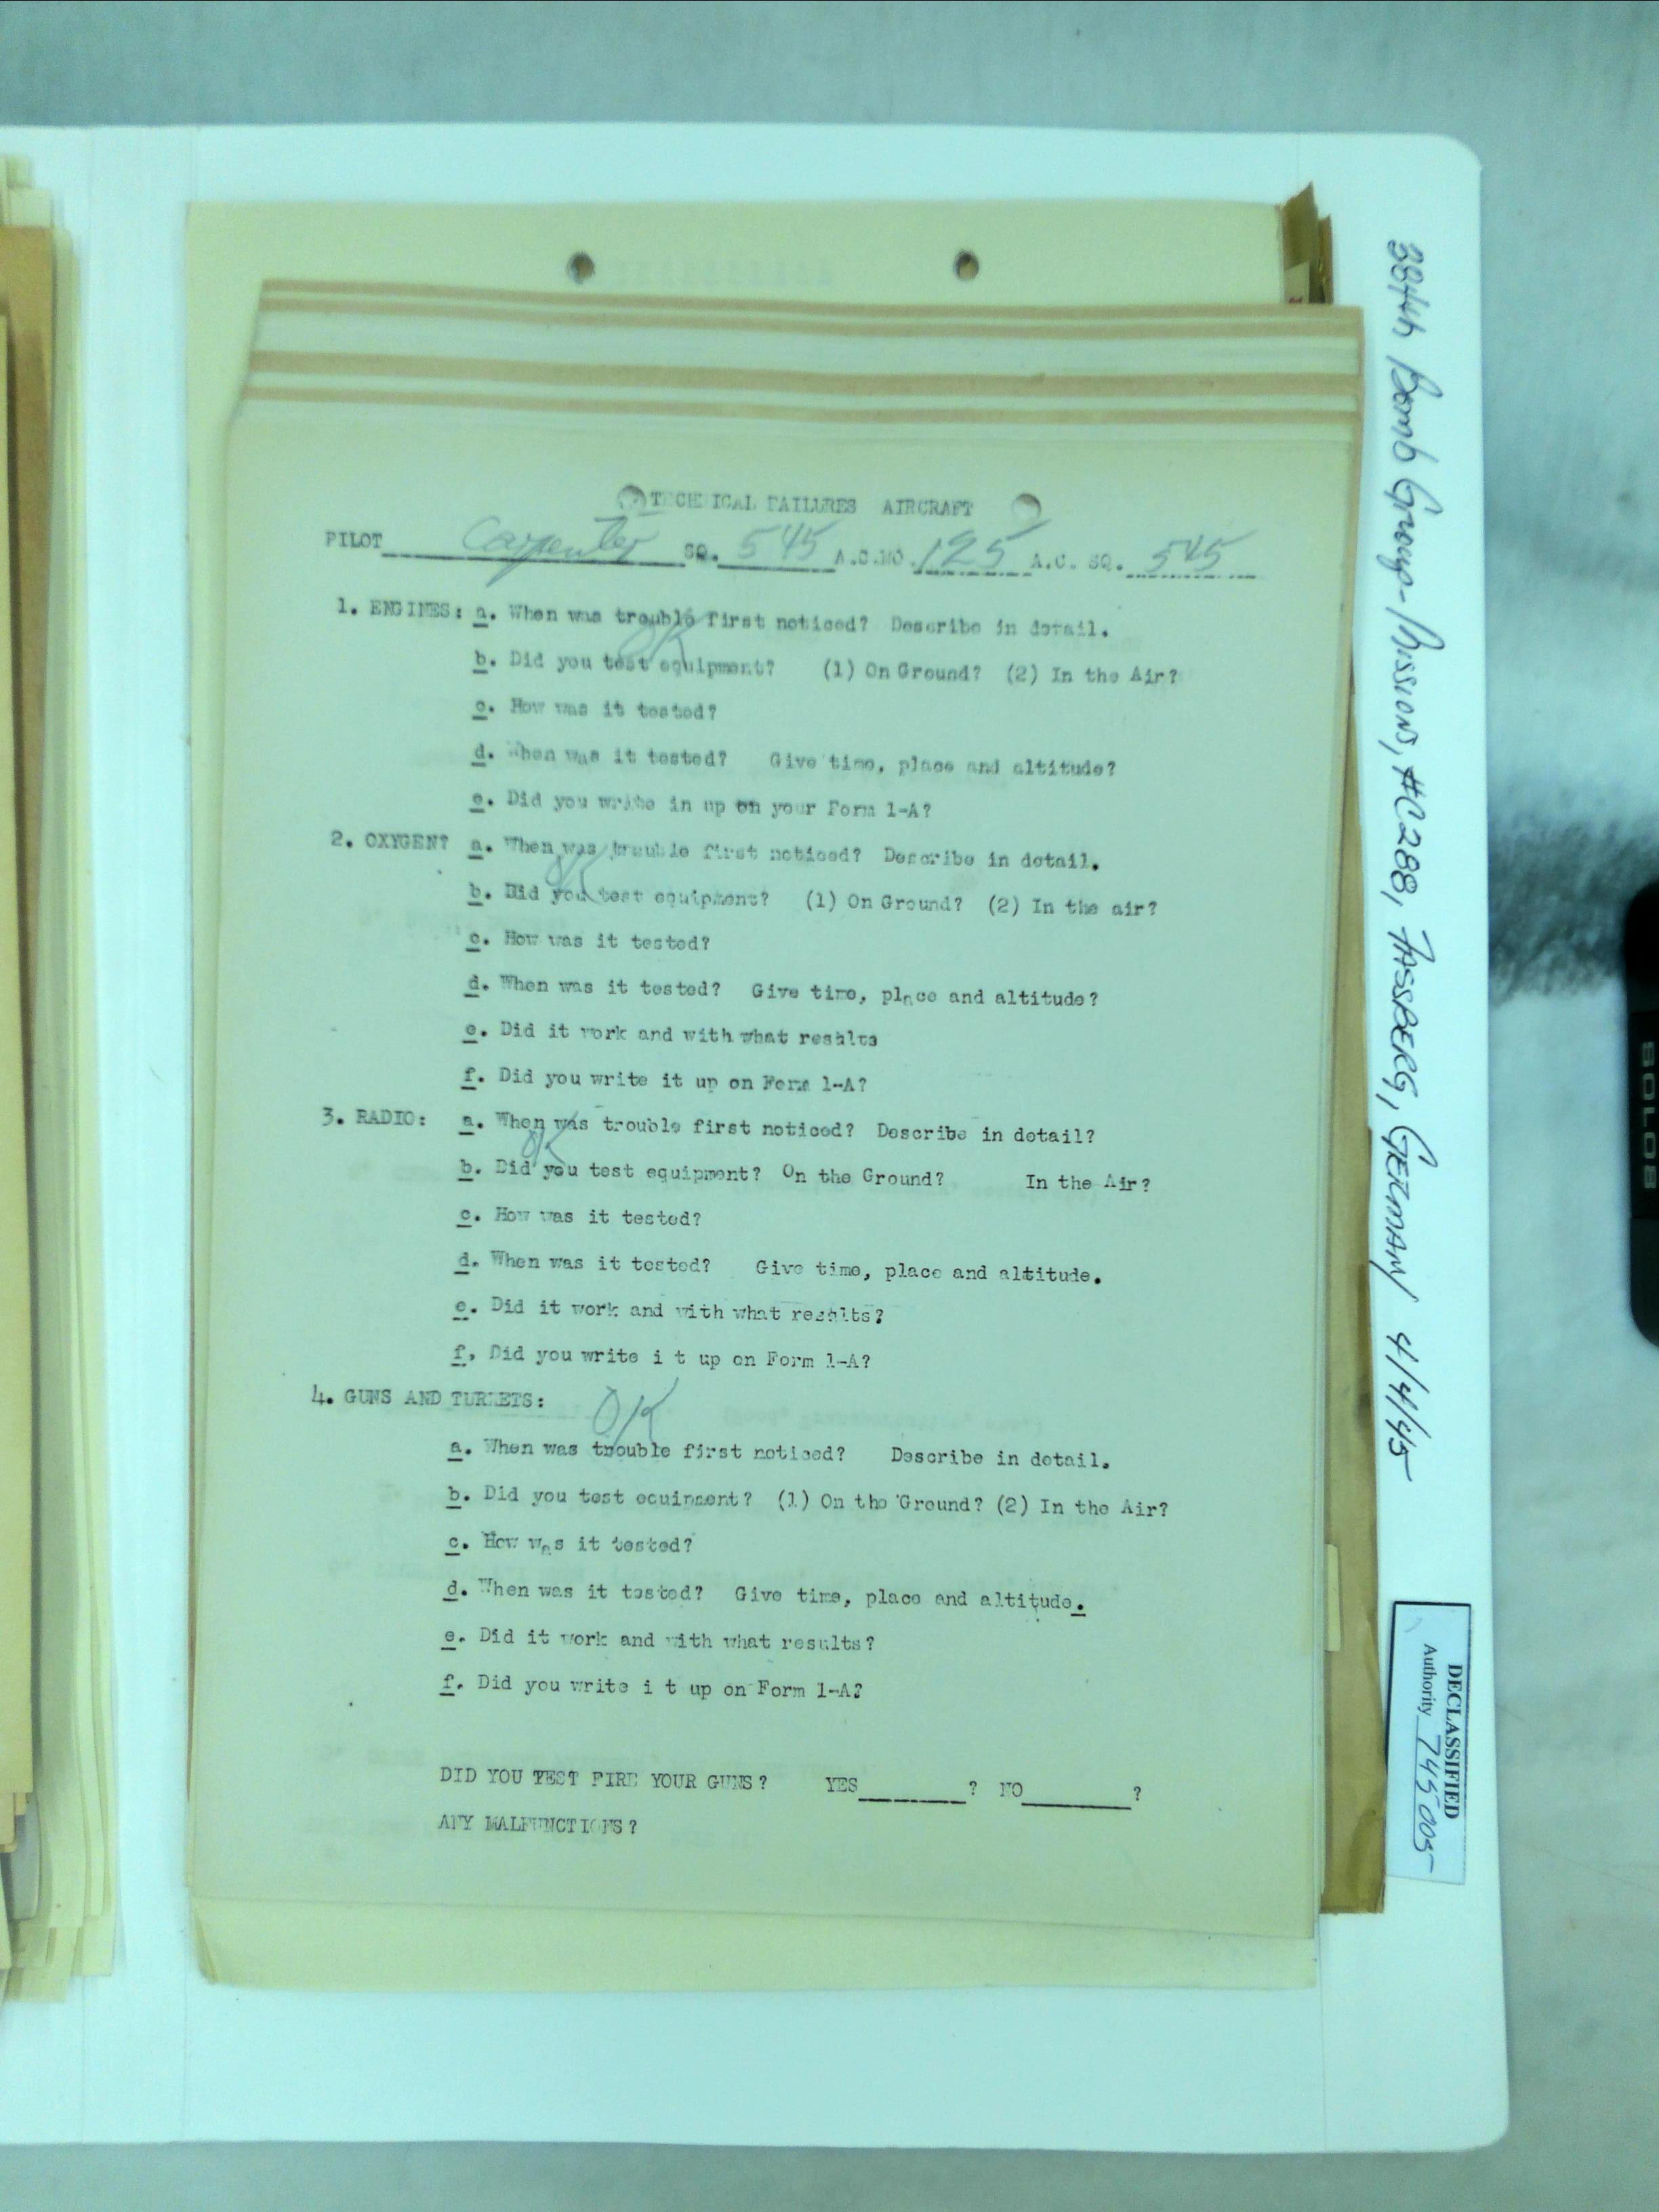 TECHNICAL FAILURES AIRCRAFT
PILOT Carpenter SQ. 545 A.C.NO. 125 A.C. SQ. 545
1. ENGINES: a. When was trouble first noticed? Describe in detail.
OK
b. Did you test equipment? (1) On Ground? (2) In the Air?
c. How was it tested?
d. When was it tested? Give time, place and altitude?
e. Did you write in up on your Form 1-A?
2. OXYGEN? a. When was trouble first noticed? Describe in detail.
OK
b. Did you test equipment? (1) On Ground? (2) In the air?
c. How was it tested?
d. When was it tested? Give time, place and altitude?
e. Did it work and with what results
f. Did you write it up on Form 1-A?
3. RADIO: a. When was trouble first noticed? Describe in detail?
OK
b. Did you test equipment? On the Ground? In the Air?
c. How was it tested?
d. When was it tested? Give time, place and altitude.
e. Did it work and with what results?
f. Did you write i t up on Form 1-A?
4. GUNS AND TURRETS: OK
a. When was trouble first noticed? Describe in detail.
b. Did you test equipment? (1) On the Ground? (2) In the Air?
c. How was it tested?
d. When was it tested? Give time, place and altitude.
e. Did it work and with what results?
f. Did you write i t up on Form 1-A?
DID YOU TEST FIRE YOUR GUNS? YES ? NO ?
ANY MALFUNCTIONS?
384th Bomb Group-Missions, #C288, FASSBERG, GERMANY 4/4/45
DECLASSIFIED
Authority 745005
SOLO8